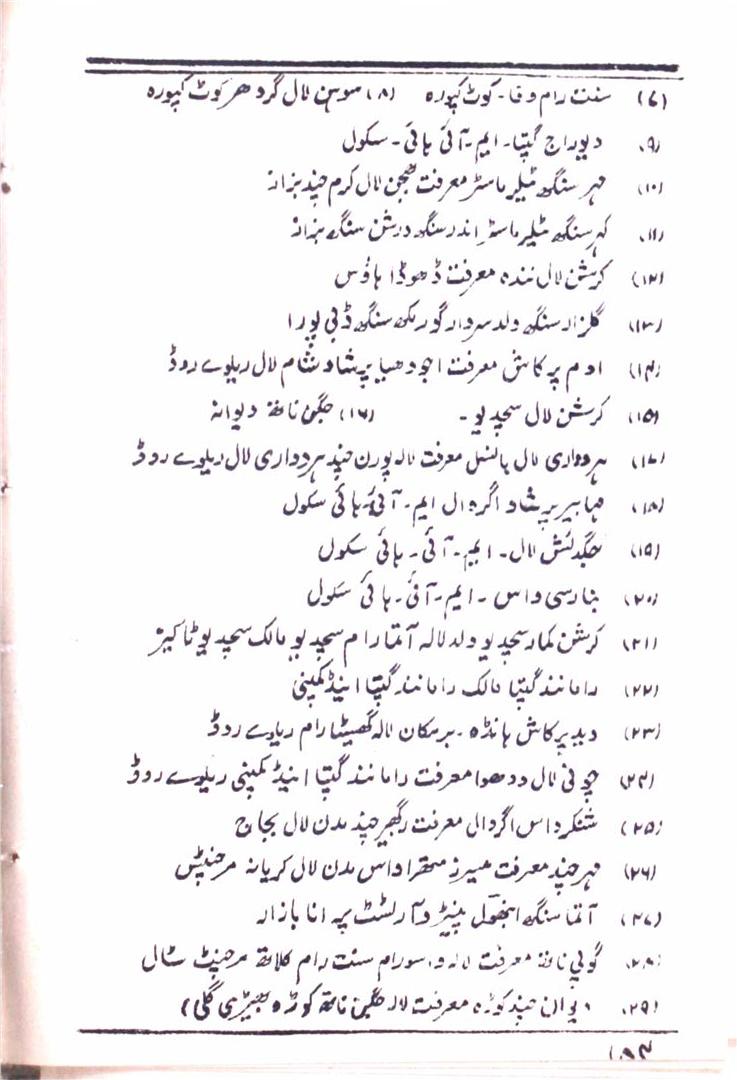 (۷) سنت رام وفا۔ کوٹ کپورہ (۸) موہن لال گردھر کوٹ کپورہ
(۹) دیوراج گپتا۔ ایم۔ آئی ہائی۔ سکول
(۱۰) مہر سنگھ ٹیلر ماسٹر معرفت سجن لال کرم چند بزاز
(۱۱) کہر سنگھ ٹیلر ماسٹر اندر سنگھ درشن سنگھ بزاز
(۱۲) کرشن لال نندہ معرفت ڈھوڈا ہاؤس
(۱۳) گلزار سنگھ ولد سردار گورمکھ سنگھ ڈبی پورا
(۱۴) اوم پرکاش معرفت اجودھیا پرشاد شام لال ریلوے روڈ
(۱۵) کرشن لال سچدیو۔ (۱۶) جگن ناتھ دیوانہ
(۱۷) ہردواری لال بانسل معرفت لالہ پورن چند ہردواری لال ریلوے روڈ
(۱۸) مہابیر پرشاد اگروال ایم۔ آئی۔ ہائی سکول
(۱۹) جگدیش لال۔ ایم۔ آئی۔ ہائی سکول
(۲۰) بنارسی داس ۔ ایم۔ آئی۔ ہائی سکول
(۲۱) کرشن کمار سچدیو ولد لالہ آتما رام سچدیو مالک سچدیو ٹاکیز
(۲۲) رامانند گپتا مالک رامانند گپتا اینڈ کمپنی
(۲۳) وید پرکاش ہانڈہ ۔ برمکان لالہ گھسیٹا رام ریلوے روڈ
(۲۴) چونی لال ودھوا معرفت رامانند گپتا اینڈ کمپنی ریلوے روڈ
(۲۵) شنکر داس اگروال معرفت رگھبیر چند مدن لال بجاج
(۲۶) مہر چند معرفت میسرز متھرا داس مدن لال کریانہ مرچنٹس
(۲۷) آتما سنگھ پینٹر و آرٹسٹ پرانا بازار
(۲۸) گوپی ناتھ معرفت لالہ واسورام سنت رام کلاتھ مرچنٹ سٹال
(۲۹) دیوان چند کوڑہ معرفت لالہ جگن ناتھ کوڑہ بھیڑی گلی)